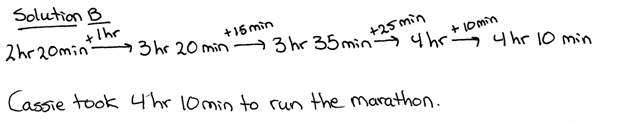 Solution B
2hr 20min +1hr → 3hr 20 min +15min → 3 hr 35 min +25 min → 4 hr + 10 min → 4 hr 10 min
Cassie took 4 hr 10 min to run the marathon.